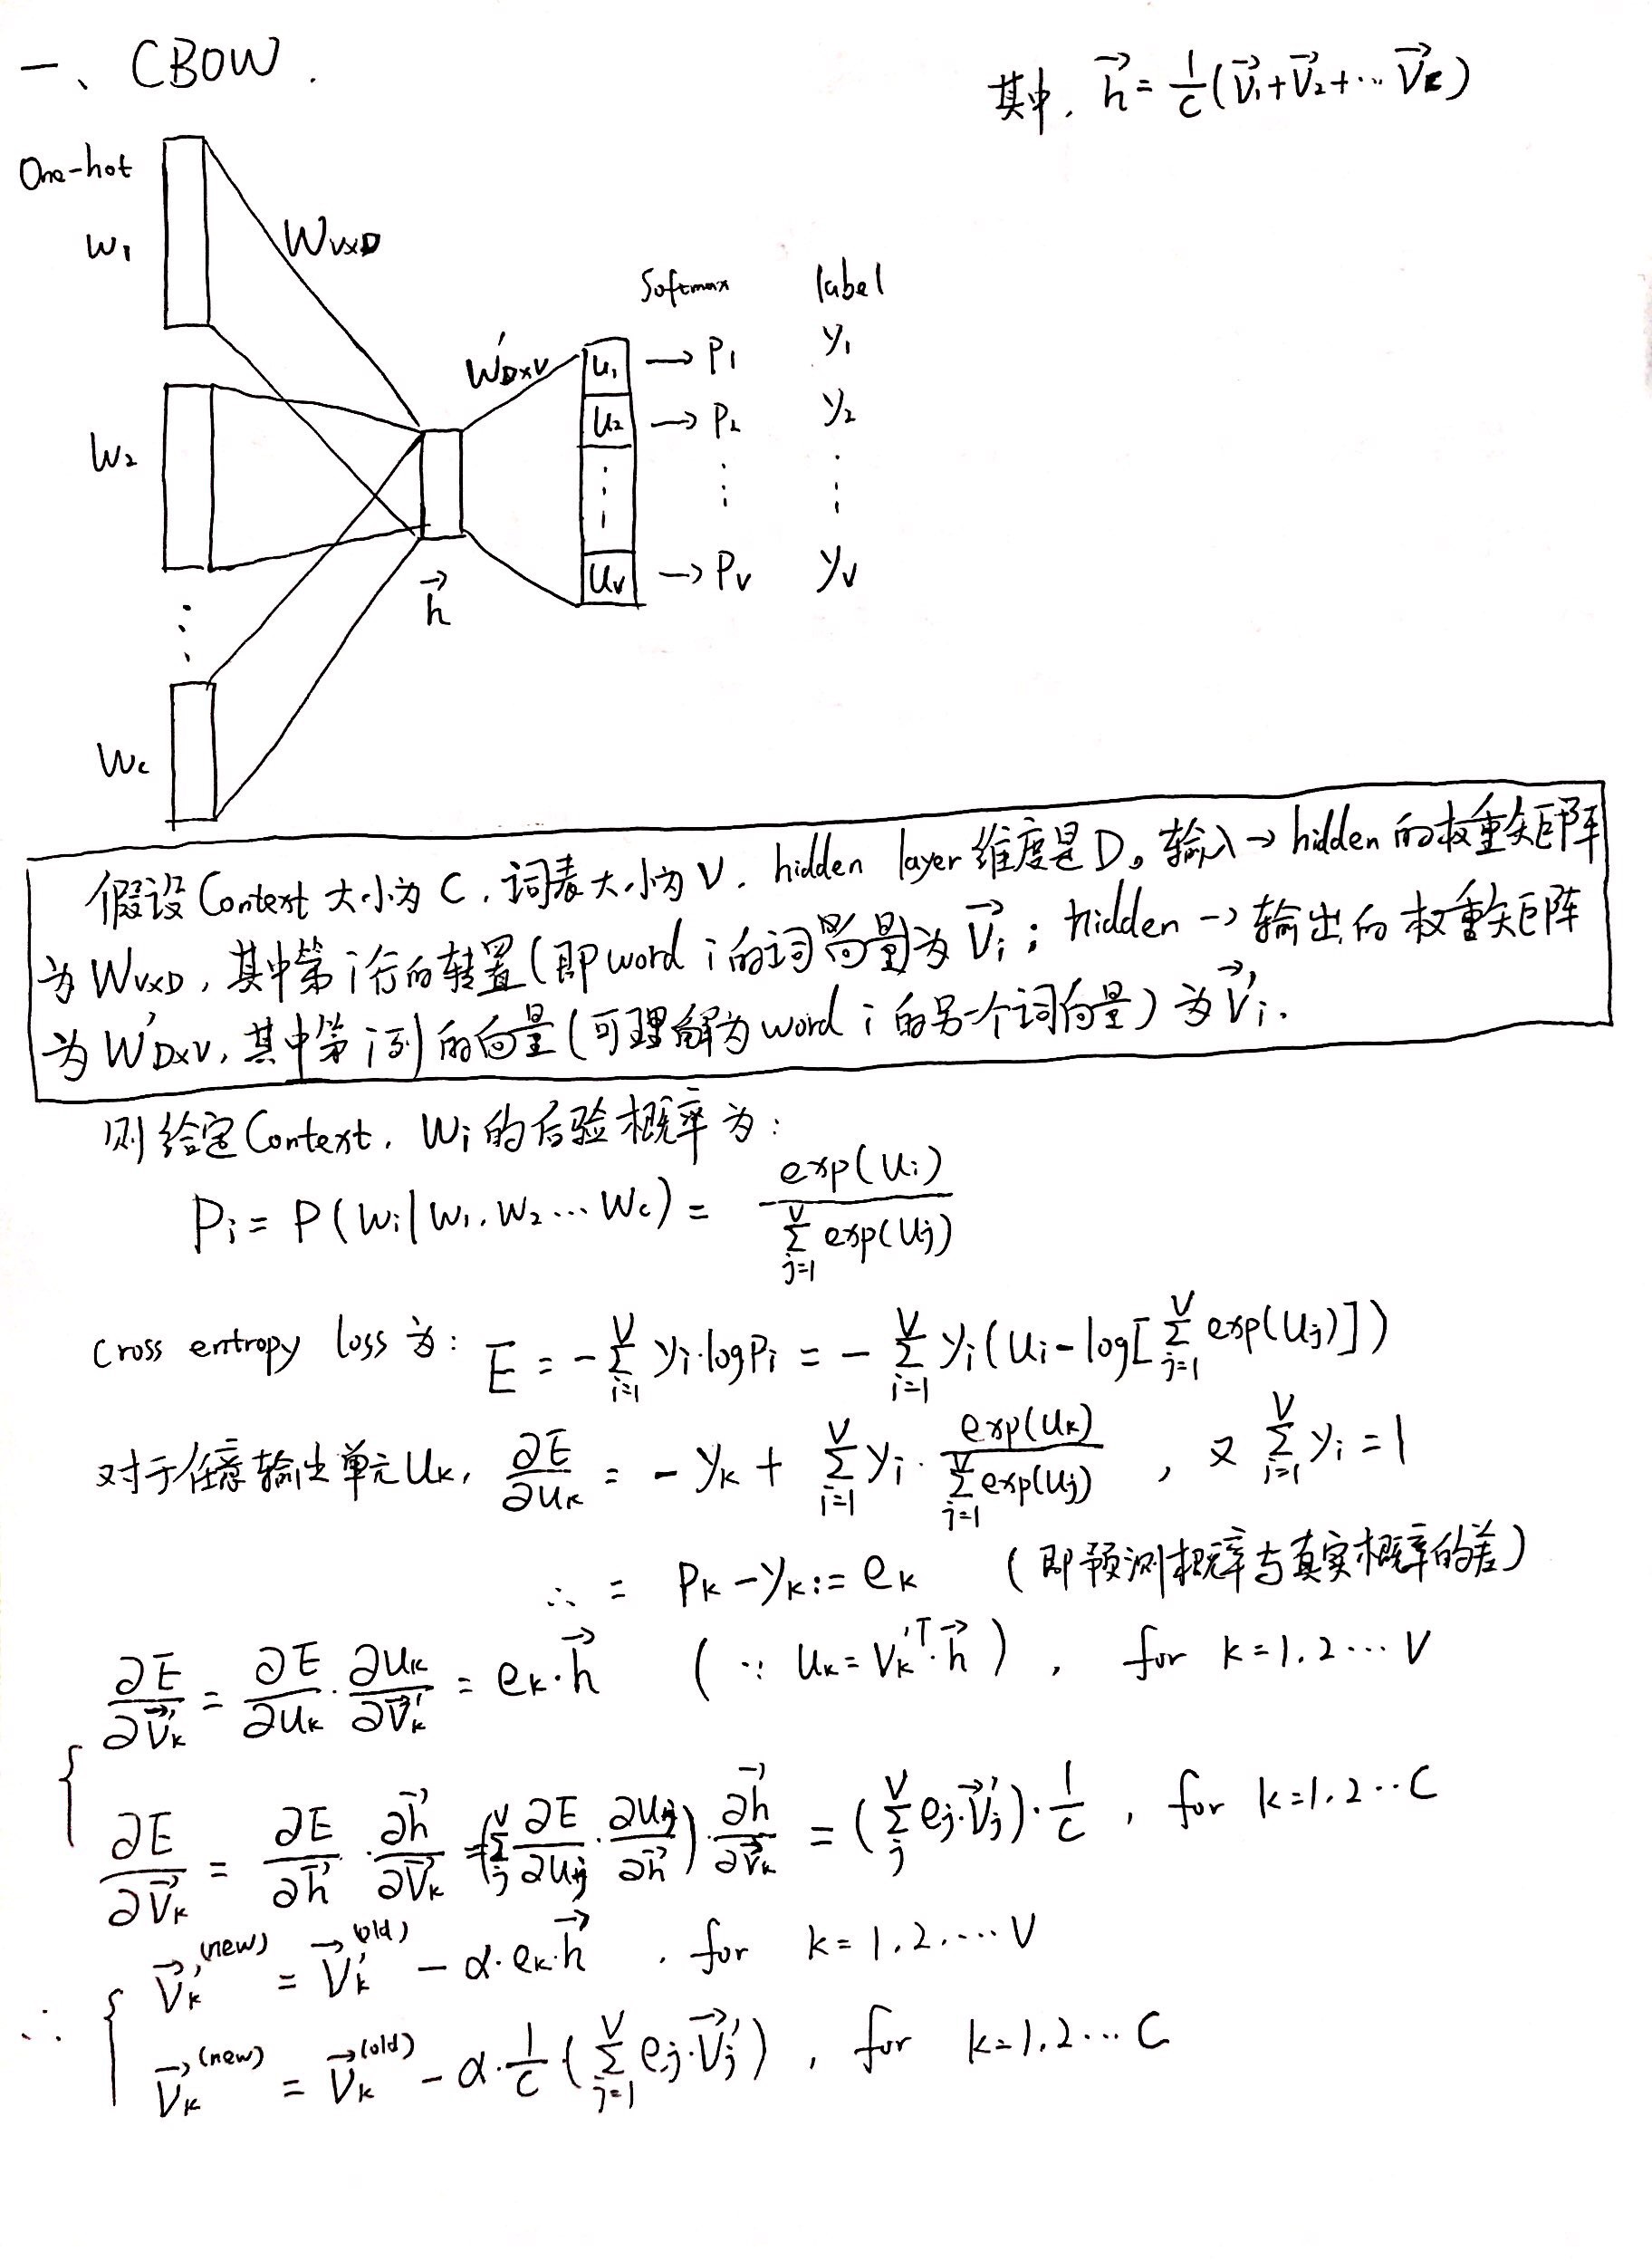 一、CBOW.
其中, h⃗ = 1/C (v⃗₁+v⃗₂+…v⃗_C)
One-hot
W₁
W_{V×D}
Softmax label
W'_{D×V}
u₁ → P₁ y₁
u₂ → P₂ y₂
W₂
⋮ ⋮ ⋮
u_V → P_V y_V
h⃗
⋮
W_c
假设Context大小为C,词表大小为V,hidden layer维度是D。输入→hidden的权重矩阵
为W_{V×D},其中第i行的转置(即word i的词向量)为v⃗_i;hidden→输出的权重矩阵
为W'_{D×V},其中第i列的向量(可理解为word i的另一个词向量)为v⃗'_i.
则给定Context, W_i的后验概率为:
P_i = P(W_i|W₁,W₂…W_c) = exp(u_i) / Σ_{j=1}^{V} exp(u_j)
Cross entropy loss为: E = -Σ_{i=1}^{V} y_i·logP_i = -Σ_{i=1}^{V} y_i(u_i-log[Σ_{j=1}^{V} exp(u_j)])
对于任意输出单元u_k, ∂E/∂u_k = -y_k + Σ_{i=1}^{V} y_i · exp(u_k) / Σ_{j=1}^{V} exp(u_j) , 又 Σ_{i=1}^{V} y_i = 1
∴ = P_k - y_k := e_k (即预测概率与真实概率的差)
∂E/∂v⃗'_k = ∂E/∂u_k · ∂u_k/∂v⃗'_k = e_k·h⃗ (∵ u_k = v'_k^T·h⃗), for k=1,2…V
∂E/∂v⃗_k = ∂E/∂h⃗ · ∂h⃗/∂v⃗_k = (Σ_j^V ∂E/∂u_j · ∂u_j/∂h⃗) · ∂h⃗/∂v⃗_k = (Σ_j^V e_j·v⃗'_j)·1/C , for k=1,2…C
∴ { v⃗'_k^(new) = v⃗'_k^(old) - α·e_k·h⃗ , for k=1,2,…V
v⃗_k^(new) = v⃗_k^(old) - α·1/C·(Σ_{j=1}^{V} e_j·v⃗'_j) , for k=1,2…C